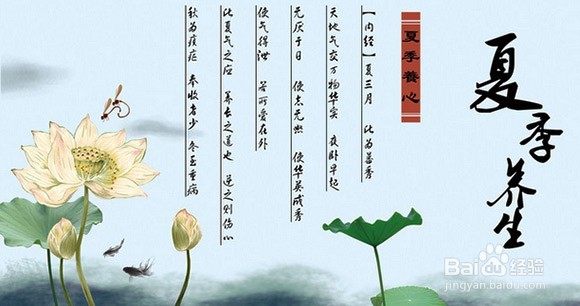 夏季养生
夏季養心
【内经】夏三月 此为蕃秀
天地气交万物华实 夜卧早起
无厌于日 使志无怒 使华英成秀
使气得泄 若所爱在外
此夏气之应 养长之道也 逆之则伤心
秋为痎疟 奉收者少 冬至重病
Baidu 经验
jingyan.baidu.com